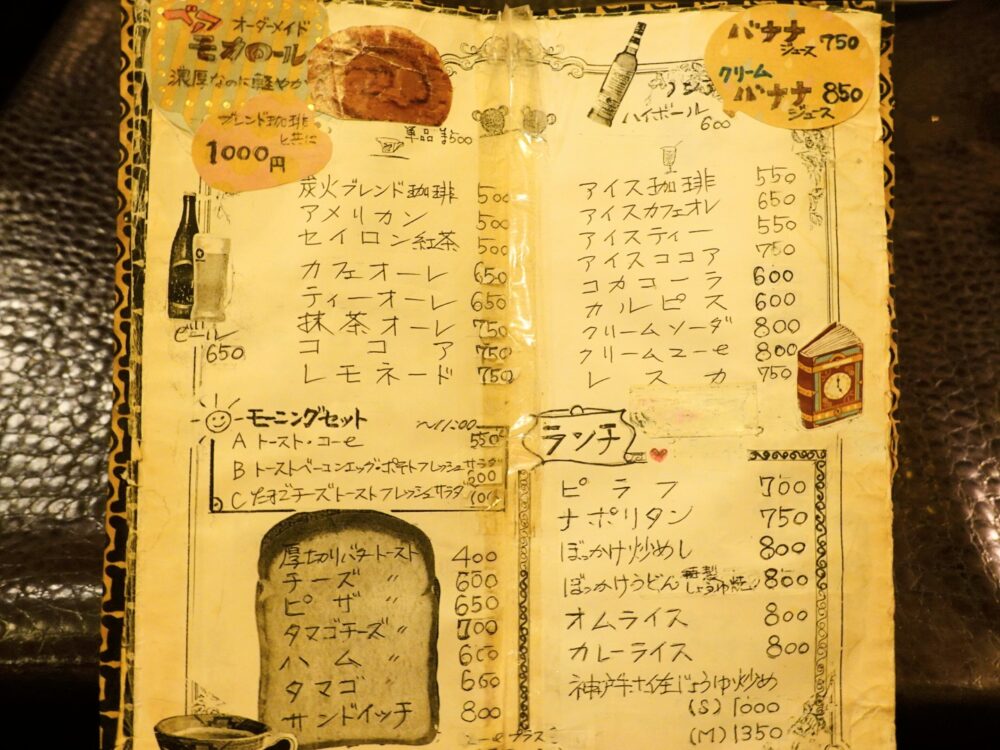 ベア オーダーメイド
モカロール
濃厚なのに軽やか
ブレンド珈琲
と共に
1000円
単品¥500
炭火ブレンド珈琲 500
アメリカン 500
セイロン紅茶 500
カフェオーレ 650
ティーオーレ 650
抹茶オーレ 750
ココア 750
レモネード 750
ビール
650
モーニングセット ~11:00
A トースト・コーヒー 550
B トーストベーコンエッグ・ポテトフレッシュサラダ
C たまごチーズトーストフレッシュサラダ
厚切りバタートースト 400
チーズ 〃 600
ピザ 〃 650
タマゴチーズ 〃 700
ハム 〃 600
タマゴ 〃 600
サンドイッチ 800
プラス
バナナ
ジュース 750
クリーム
バナナ 850
ジュース
ハイボール
600
アイス珈琲 550
アイスカフェオレ 650
アイスティー 550
アイスココア 750
コカコーラ 600
カルピス 600
クリームソーダ 800
クリームコーヒー 800
レスカ 750
ランチ
ピラフ 700
ナポリタン 750
ぼっかけ炒めし 800
ぼっかけうどん 特製しょうゆ焼 800
オムライス 800
カレーライス 800
神戸牛土佐じょうゆ炒め
(S) 1000
(M) 1350